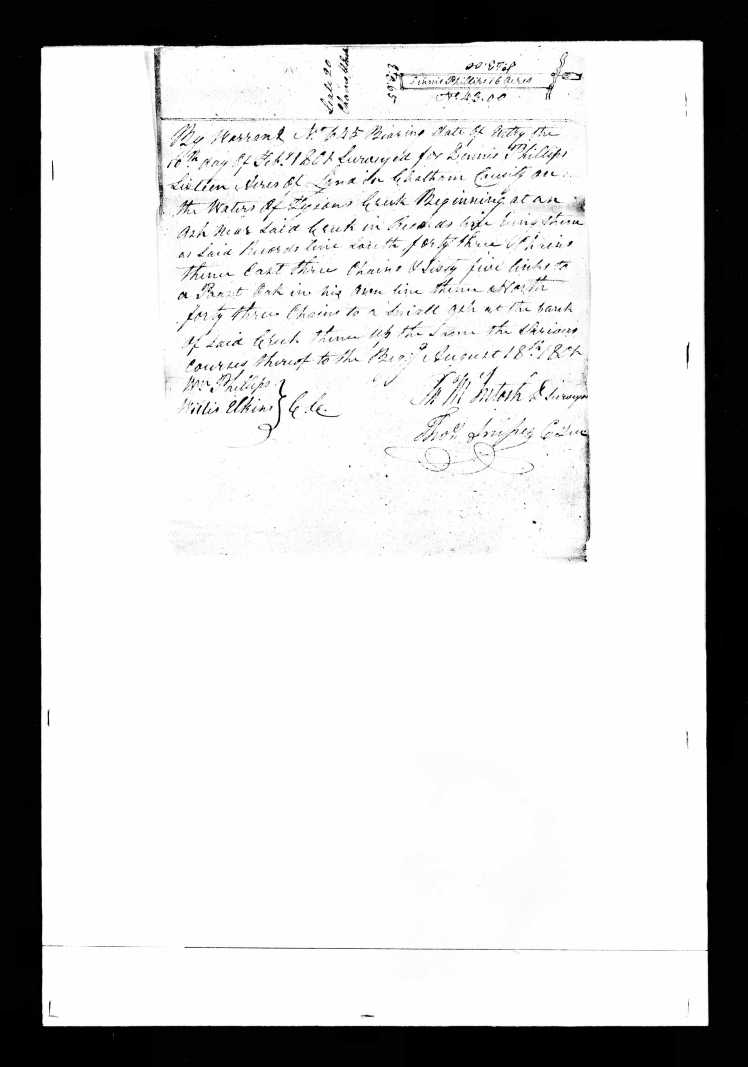 Scale 20
Chains
S 43.00
E 3.65
Dennis Phillips 16 Acres
N. 43.00
By Warrant No. 625 Bearing date of Entry the
10th day of Feb.y 1801 Surveyed for Dennis Phillips
Sixteen Acres of Land in Chatham County on
the Waters of Tysons Creek Beginning at an
Ash Near Said Creek in line
as Said line South forty three Chains
thence East three Chains & Sixty five links to
a Post Oak in his own line thence North
forty three Chains to a Small Ash at the bank
of said Creek thence up the Same the Various
Courses thereof to the Beg.g August 18th
Wm Phillips
Willis Elkins } C. C.
McIntosh D Surveyor
Thos. Snipes C Sur